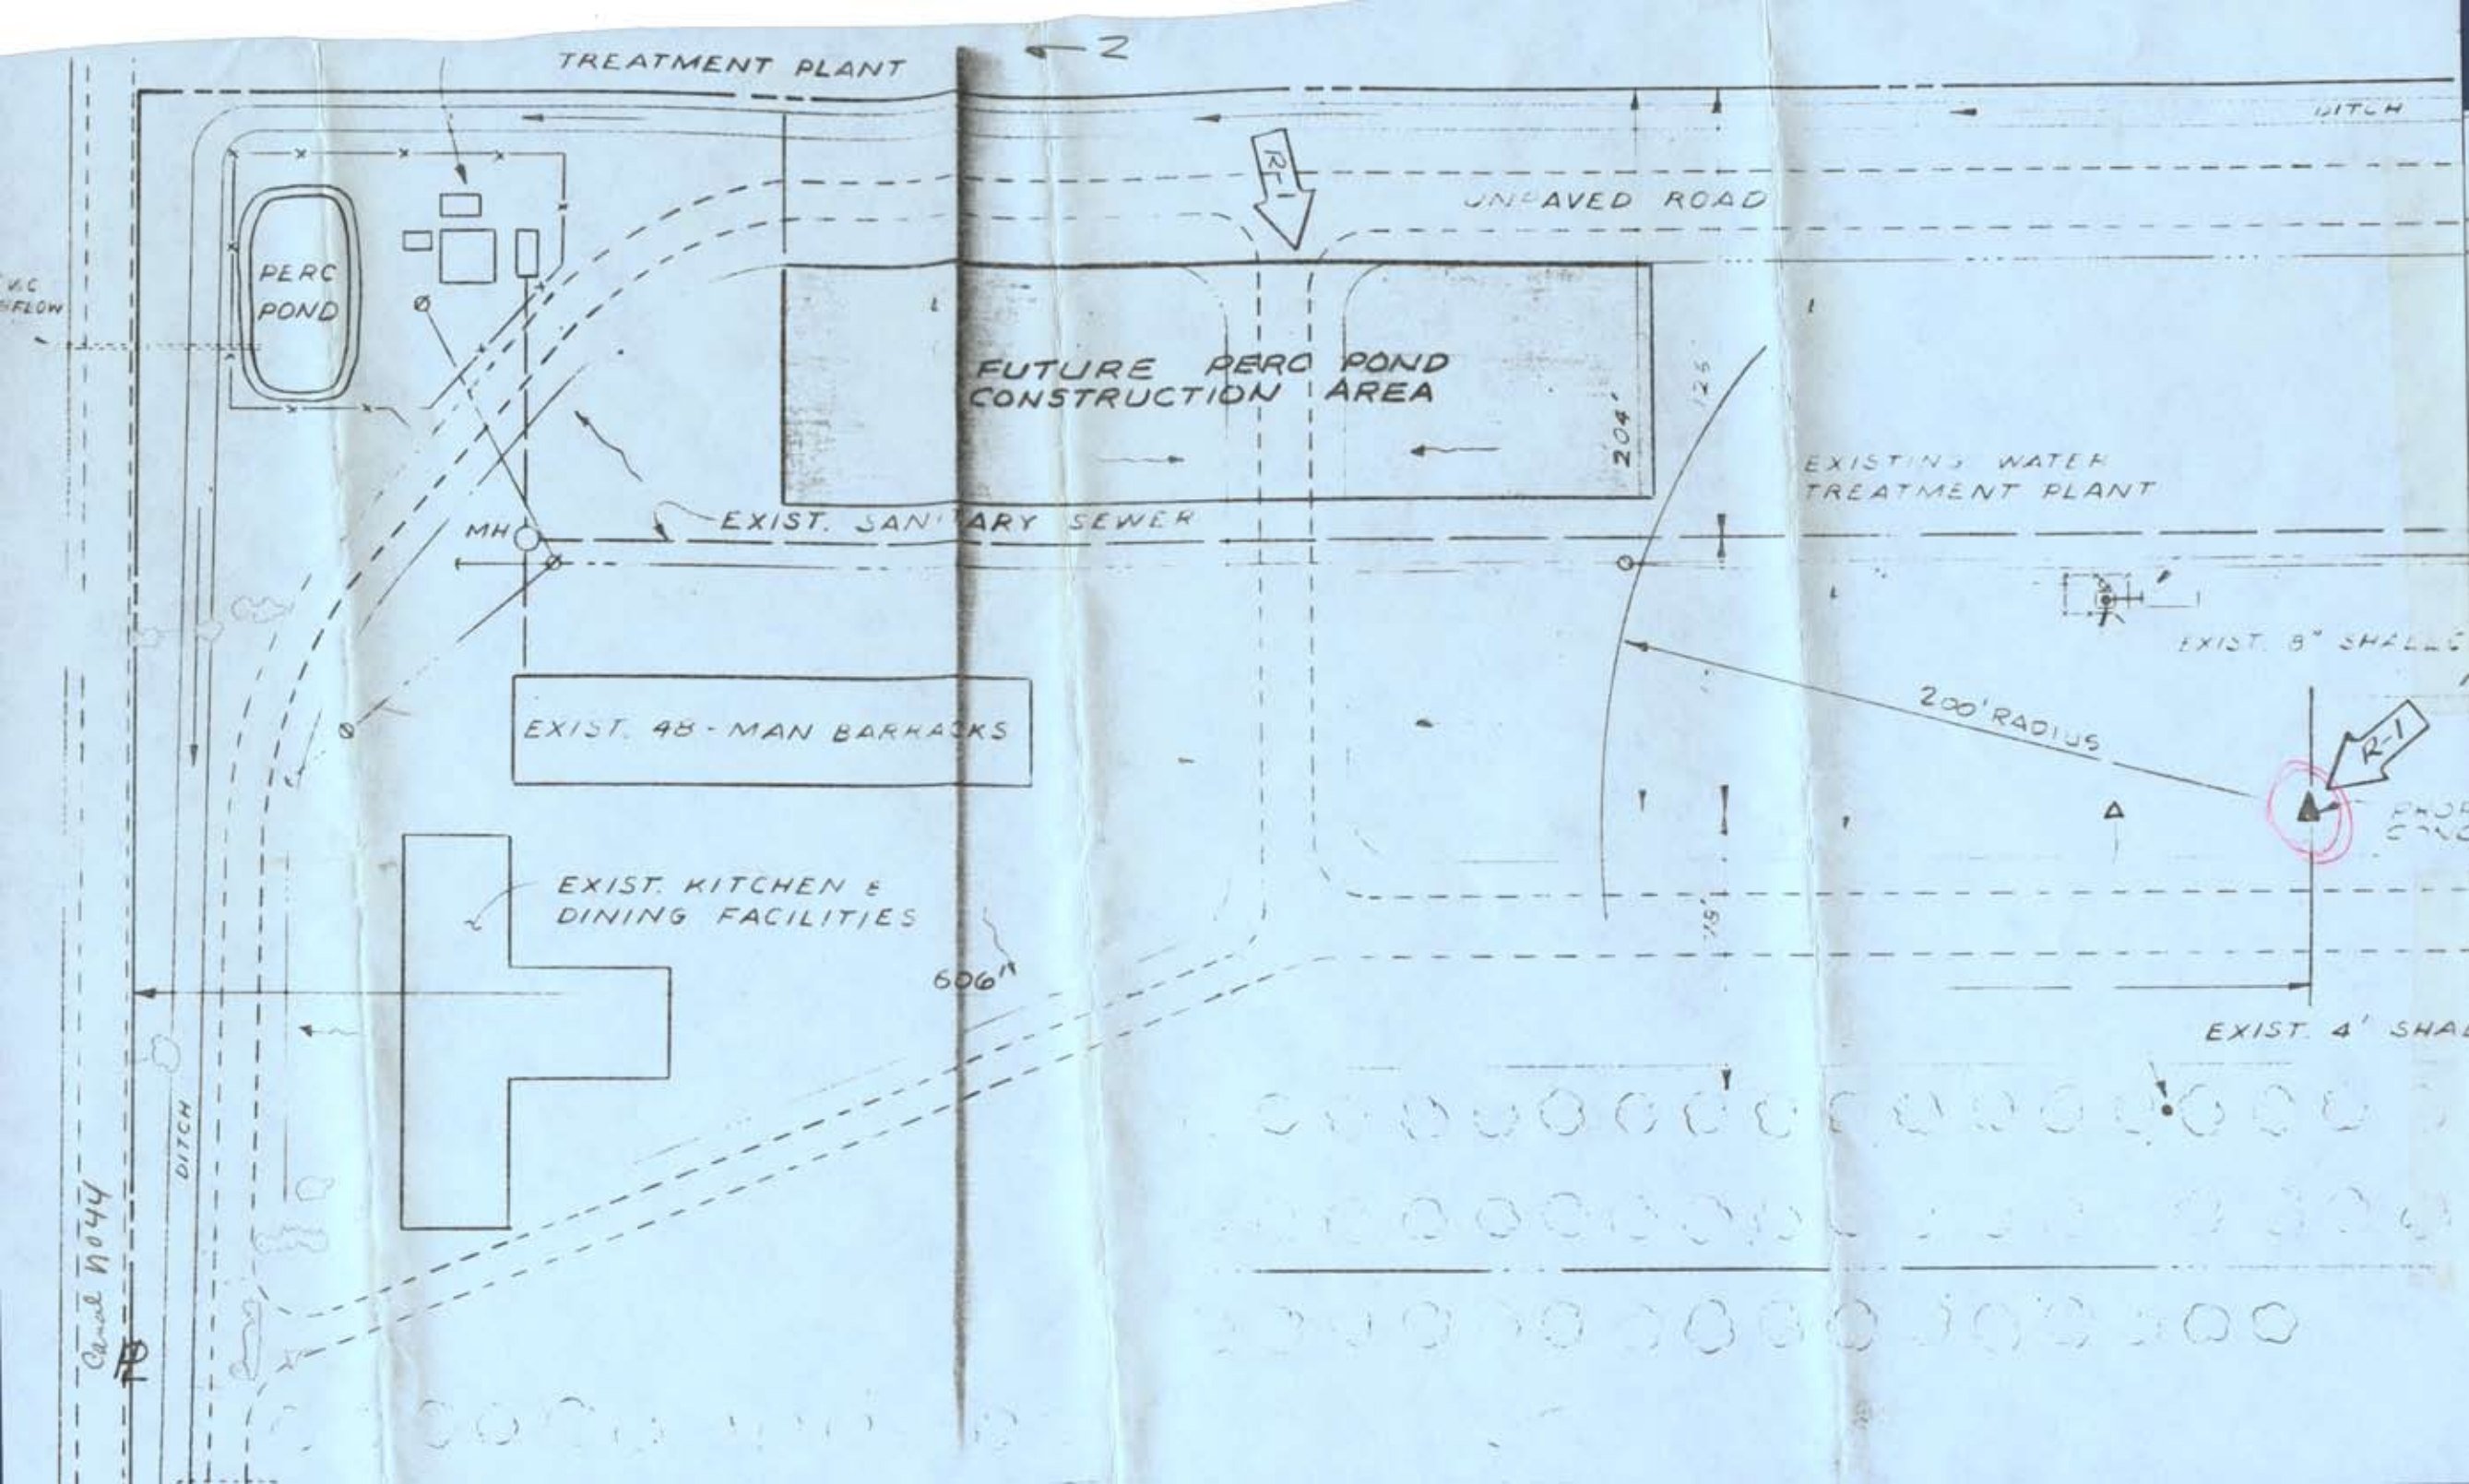 TREATMENT PLANT
N
DITCH
R-1
UNPAVED ROAD
PERC
POND
FUTURE PERC POND
CONSTRUCTION AREA
204'
125
EXISTING WATER
TREATMENT PLANT
MH
EXIST. SANITARY SEWER
EXIST. 8" SHALLO
200' RADIUS
R-1
EXIST. 48-MAN BARRACKS
EXIST. KITCHEN &
DINING FACILITIES
606'
EXIST. 4' SHAL
DITCH
Canal No 44